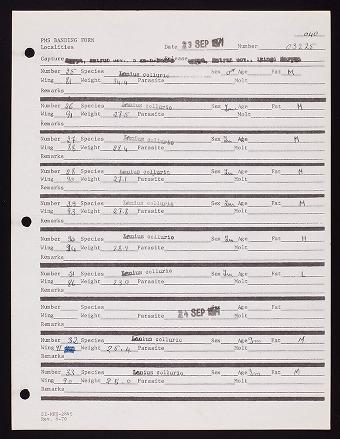 040
PMS BANDING FORM
Localities Date 23 SEP 1971 Number 03225
Capture
Number 25 Species Lanius collurio Sex ♂ Age Fat M
Wing 91 Weight 34.4 Parasite Molt
Remarks
Number 26 Species Lanius collurio Sex Im Age Fat M
Wing 91 Weight 27.5 Parasite Molt
Remarks
Number 27 Species Lanius collurio Sex Im Age Fat M
Wing 88 Weight 28.4 Parasite Molt
Remarks
Number 28 Species Lanius collurio Sex Im Age Fat M
Wing 90 Weight 27.1 Parasite Molt
Remarks
Number 29 Species Lanius collurio Sex Im Age Fat M
Wing 93 Weight 27.8 Parasite Molt
Remarks
Number 30 Species Lanius collurio Sex Im Age Fat M
Wing 94 Weight 28.9 Parasite Molt
Remarks
Number 31 Species Lanius collurio Sex Im Age Fat L
Wing Weight 23.0 Parasite Molt
Remarks
Number Species Sex Age Fat
Wing Weight Parasite 24 SEP 1971 Molt
Remarks
Number 32 Species Lanius collurio Sex Age Imm Fat M
Wing 91 Weight 25.4 Parasite Molt
Remarks
Number 33 Species Lanius collurio Sex Age Imm Fat M
Wing 90 Weight 25.0 Parasite Molt
Remarks
SI-MNH-2845
Rev. 4-70